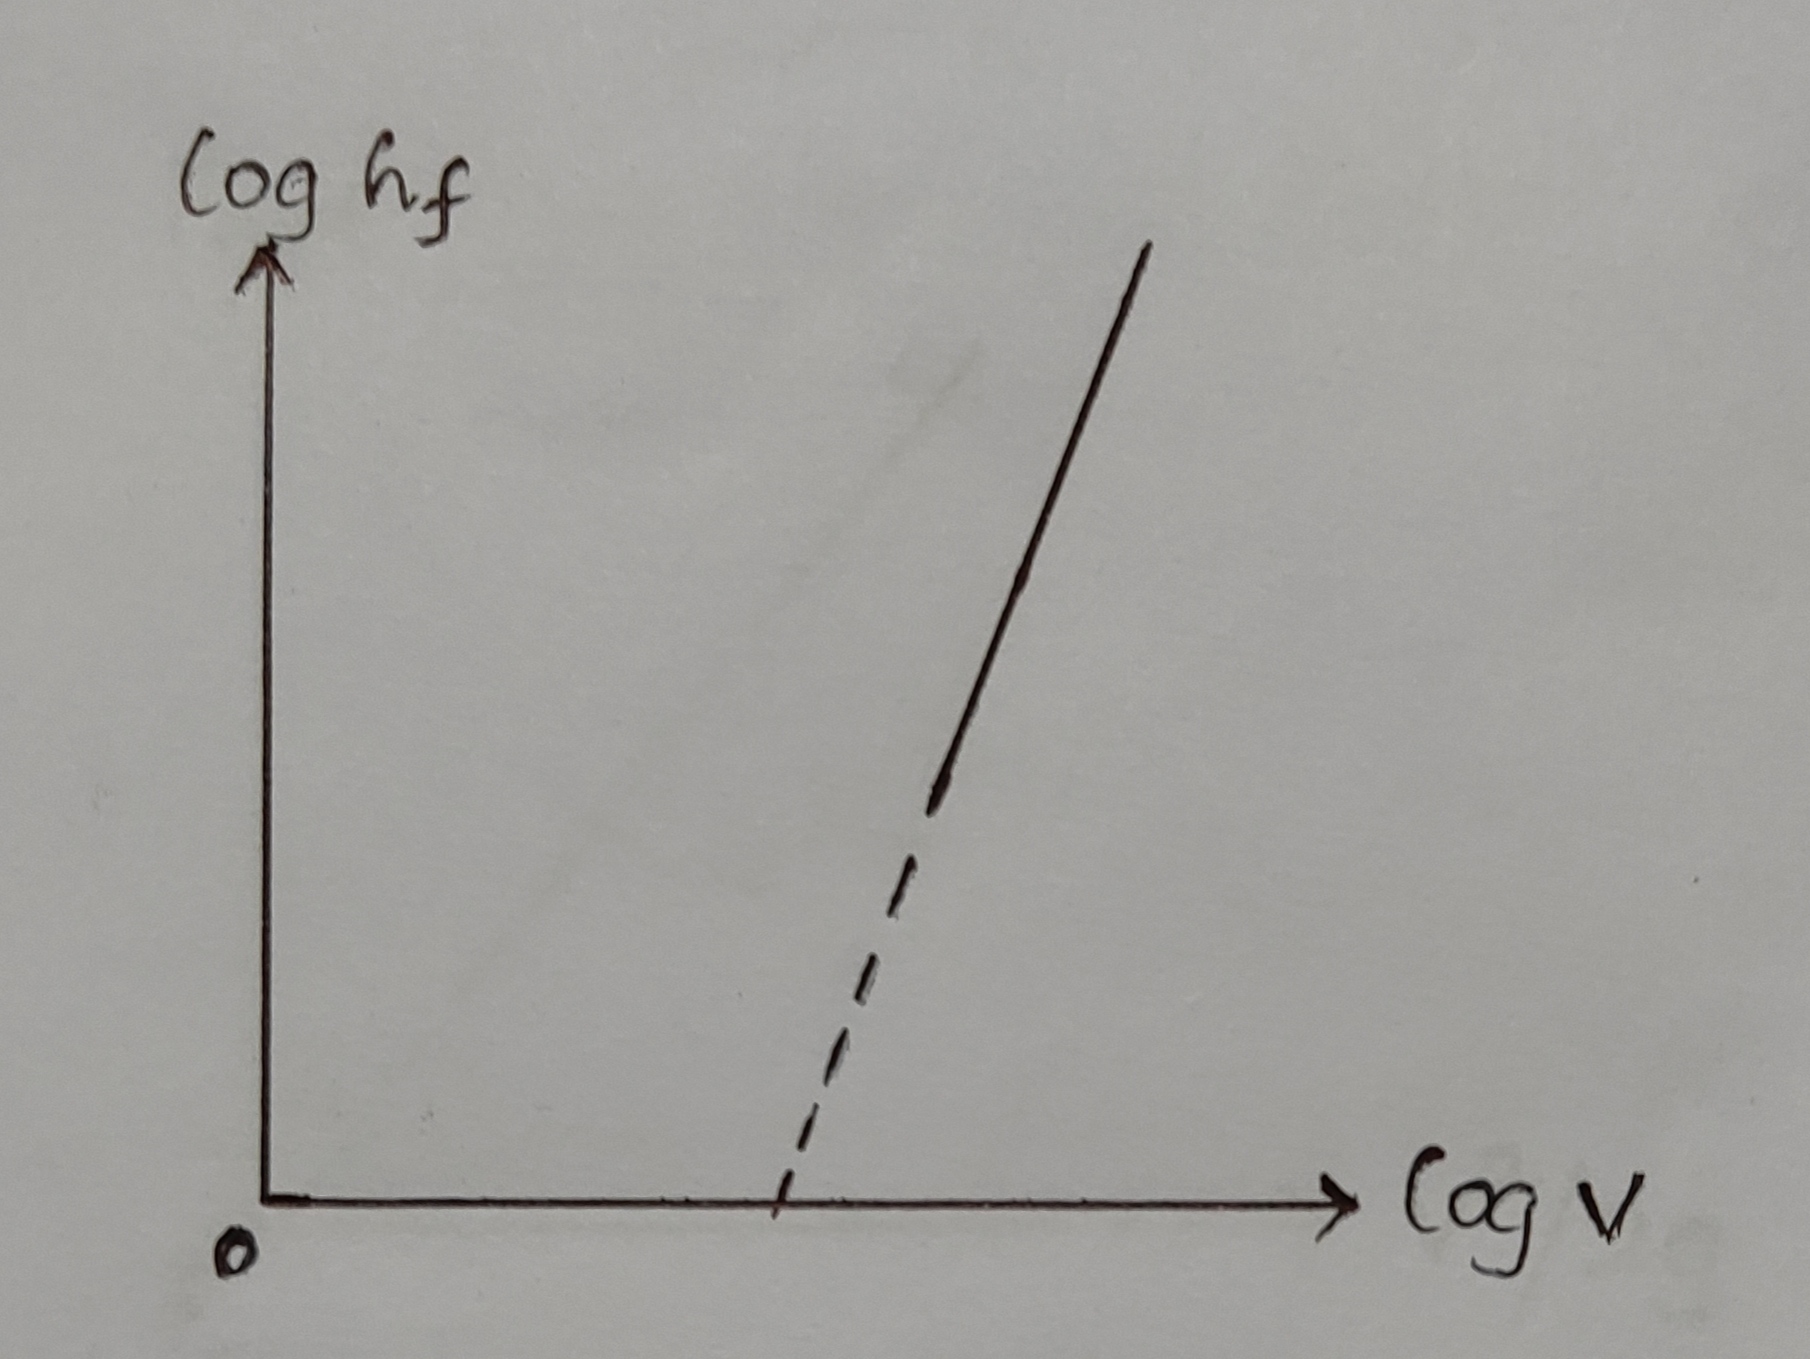 log hf
log v
0